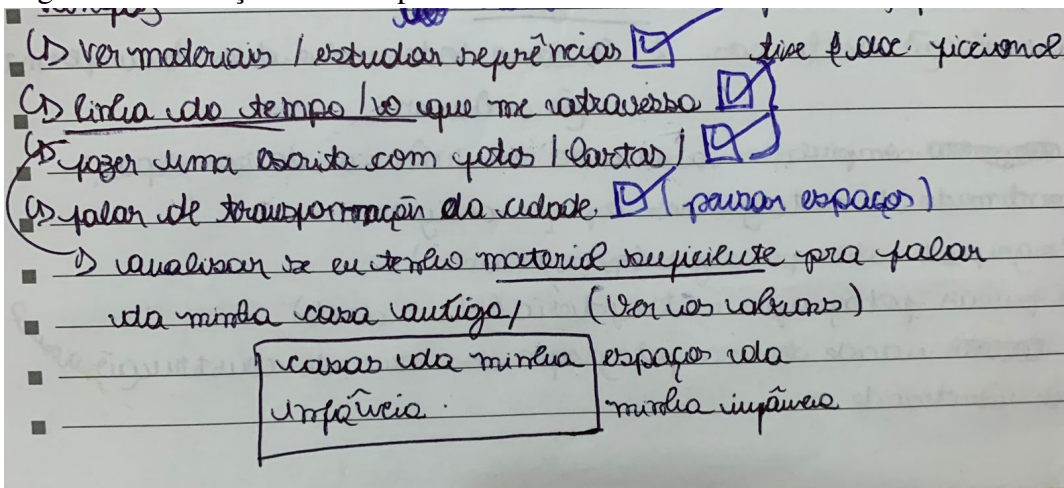 ver materiais / estudar referências
linha do tempo / o que me atravessa
fazer uma escrita com fotos / cartas /
falar de transformação da cidade (pensar espaços)
analisar se eu tenho material suficiente pra falar
da minha casa antiga, (ver os albuns)
casas da minha espaços da
infância. minha infância